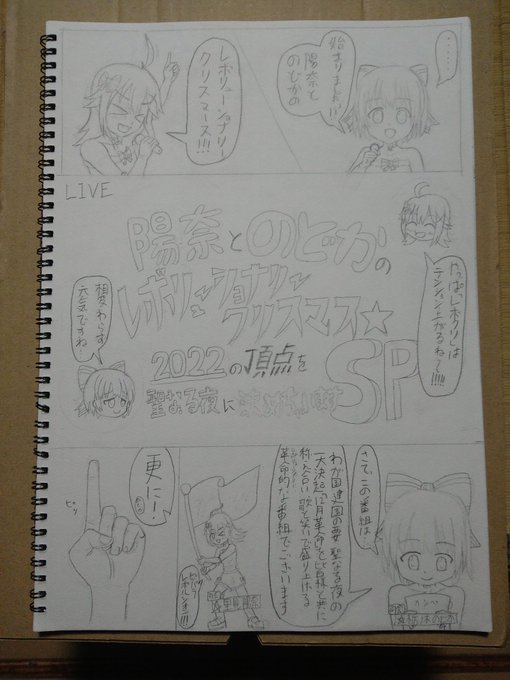 ・・・・・
始まりました!!
陽奈と
のどかの
レボリューショナリー
クリスマース!!!
LIVE
陽奈とのどかの
レボリューショナリー
クリスマス☆
2022の頂点を
聖なる夜に
SP
やっぱレボクリは
テンション上がるね〜!!!!!
相変わらず
元気ですね…
さて、この番組は
わが国建国の要、聖なる夜の
一大決起「12月革命」を
歌と笑いで盛り上げる
革命的な番組でございます
更に!
ピッ